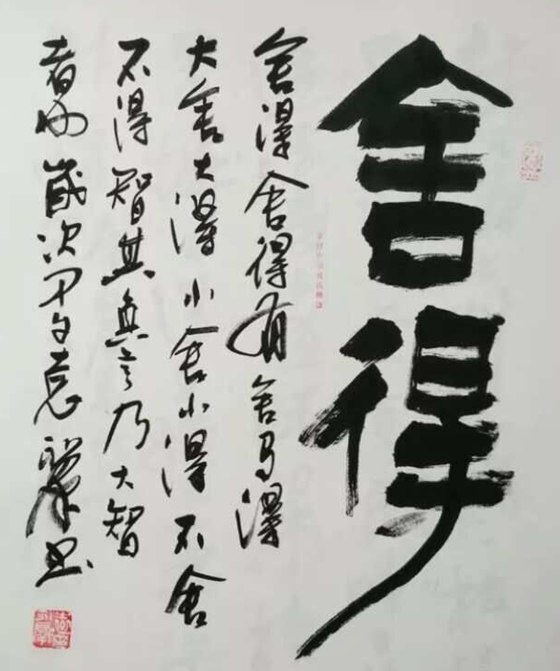 舍得
舍得舍得有舍乃得
大舍大得小舍小得不舍
不得智其真言乃大智
者也歲次甲午意